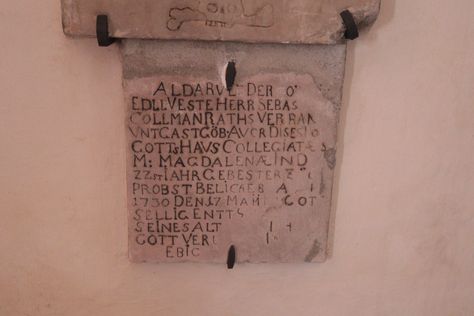 ALDA RVET DER O
EDLL VESTE HERR SEBAS
COLLMAN RATHS VER
VNT GASTGÖB AVCR DISES
GOTTS HAVS COLLEGIATÆ
M: MAGDALENÆ IN D
22 IAHR GEBESTER
PROBST BE
1730 DEN 17 MAII GOT
SELLIG ENTTS
SEINES ALT
GOTT VER
EBIG